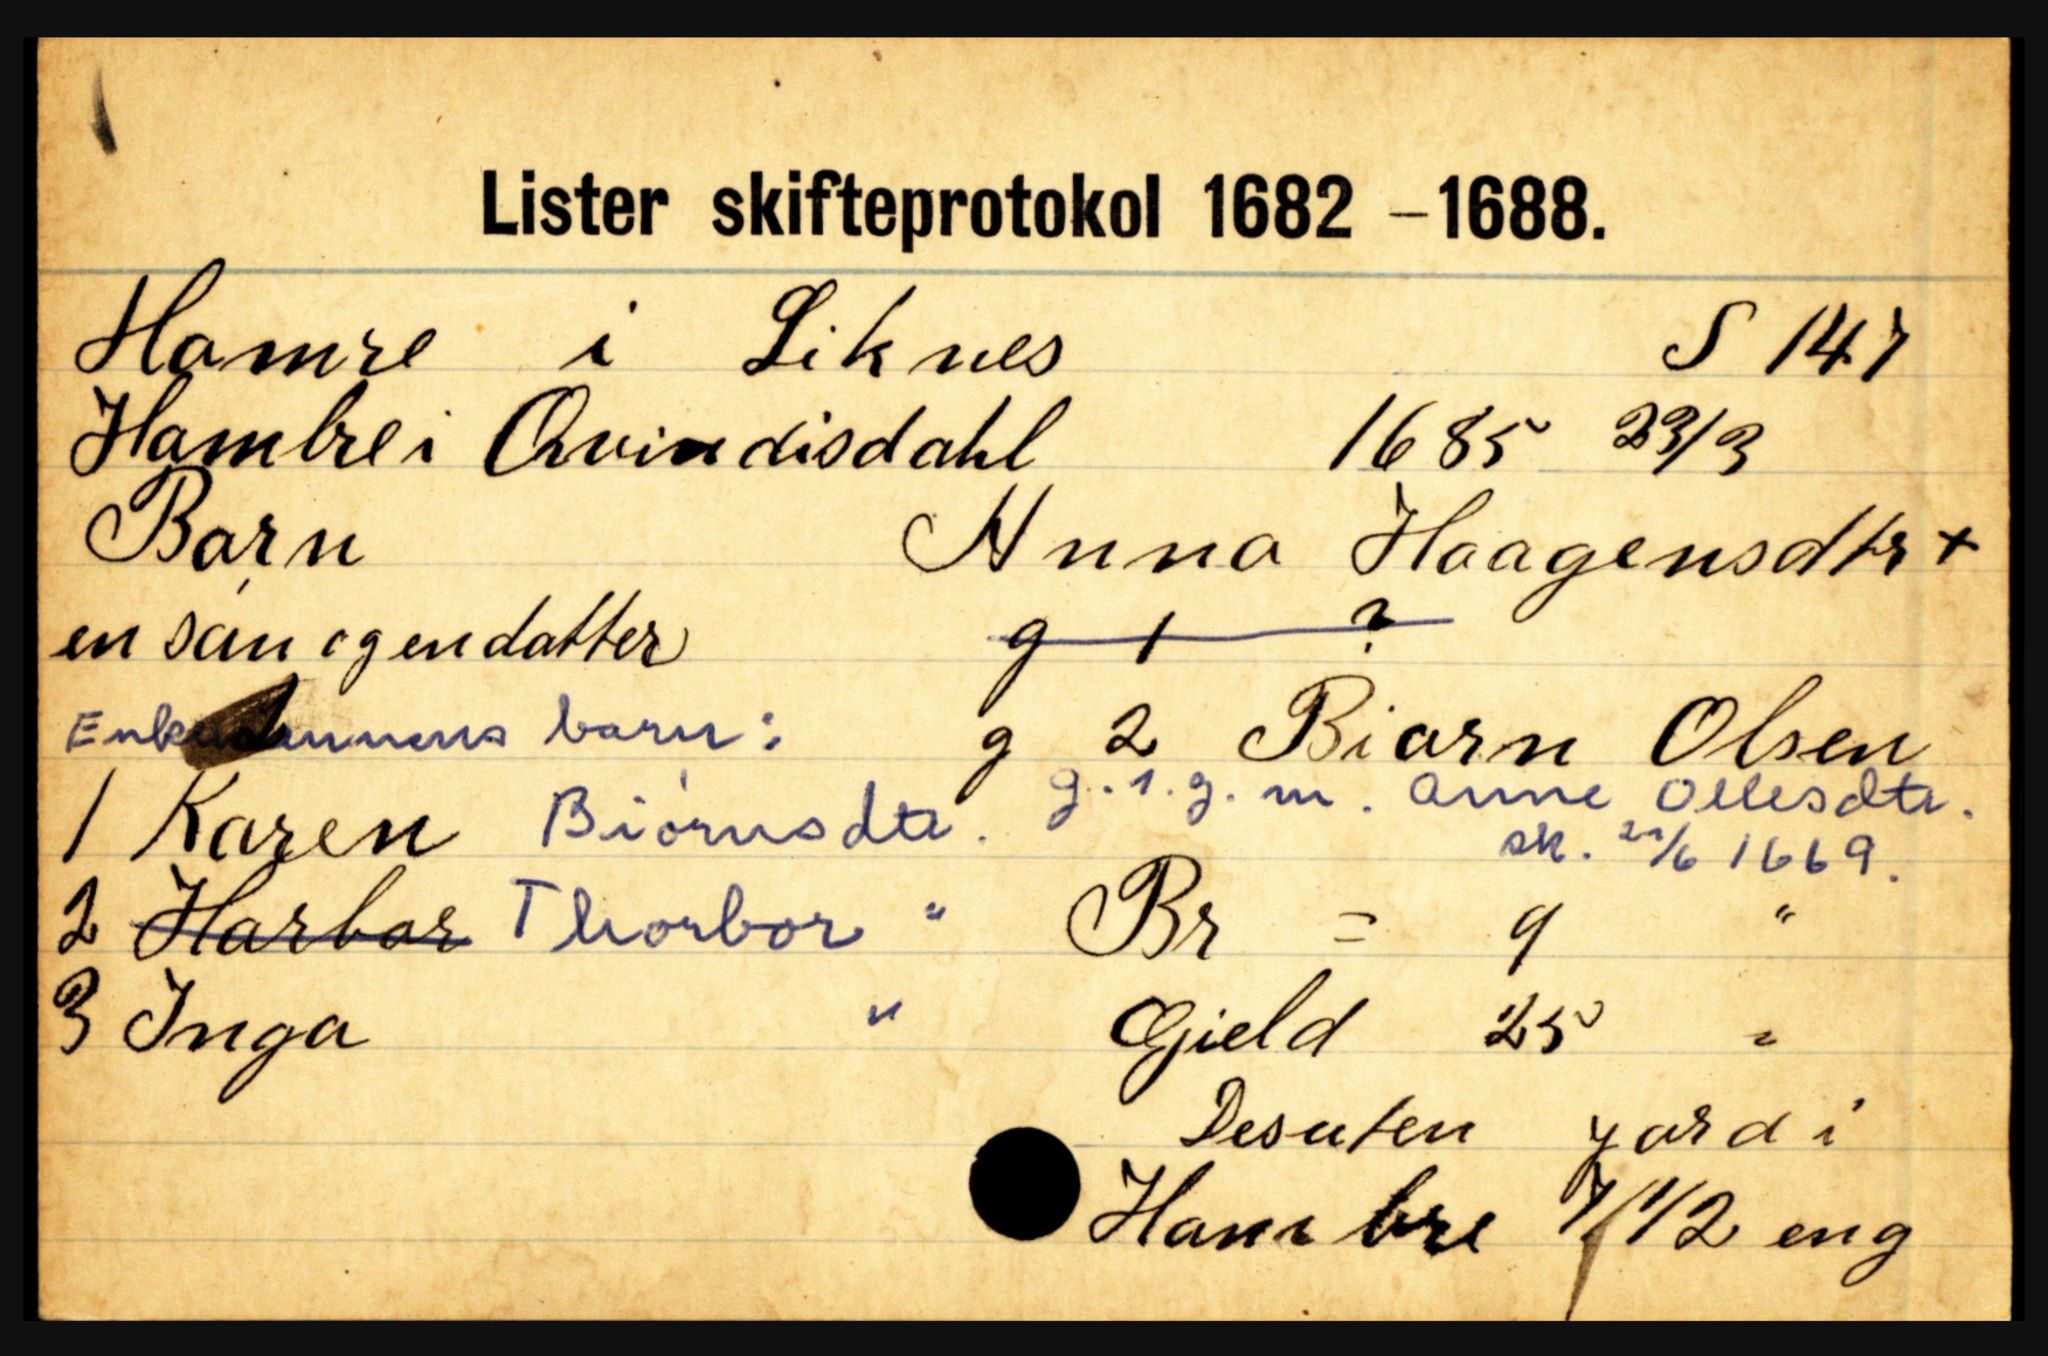 Lister skifteprotokol 1682 – 1688.
Hamre i Liknes S 147
Hambre i Qvindisdahl 1685 23/3
Børn Anna Haagensdtr +
en søn og en datter g 1 ?
Enkemannens barn: g 2 Biørn Olsen
g. 1. g. m. Anne Ollesdtr.
1 Karen Biørnsdtr.
sk. 21/6 1669.
2 Harbor Thorbor " Br = 9 "
3 Inga " Gjeld 25 "
Desuten gard i
Hambre 7 1/2 eng